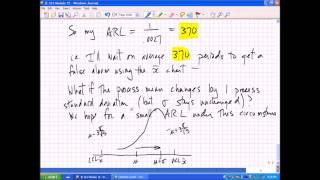 So my ARL = 1 / .0027 = 370
i.e. I'll wait on average 370 periods to get a
false alarm using the x̄ chart
What if the process mean changes by 1 process
standard deviation (but σ stays unchanged)?
We hope for a "small" ARL under this circumstance
LCL x̄ μ μ+σ UCL x̄